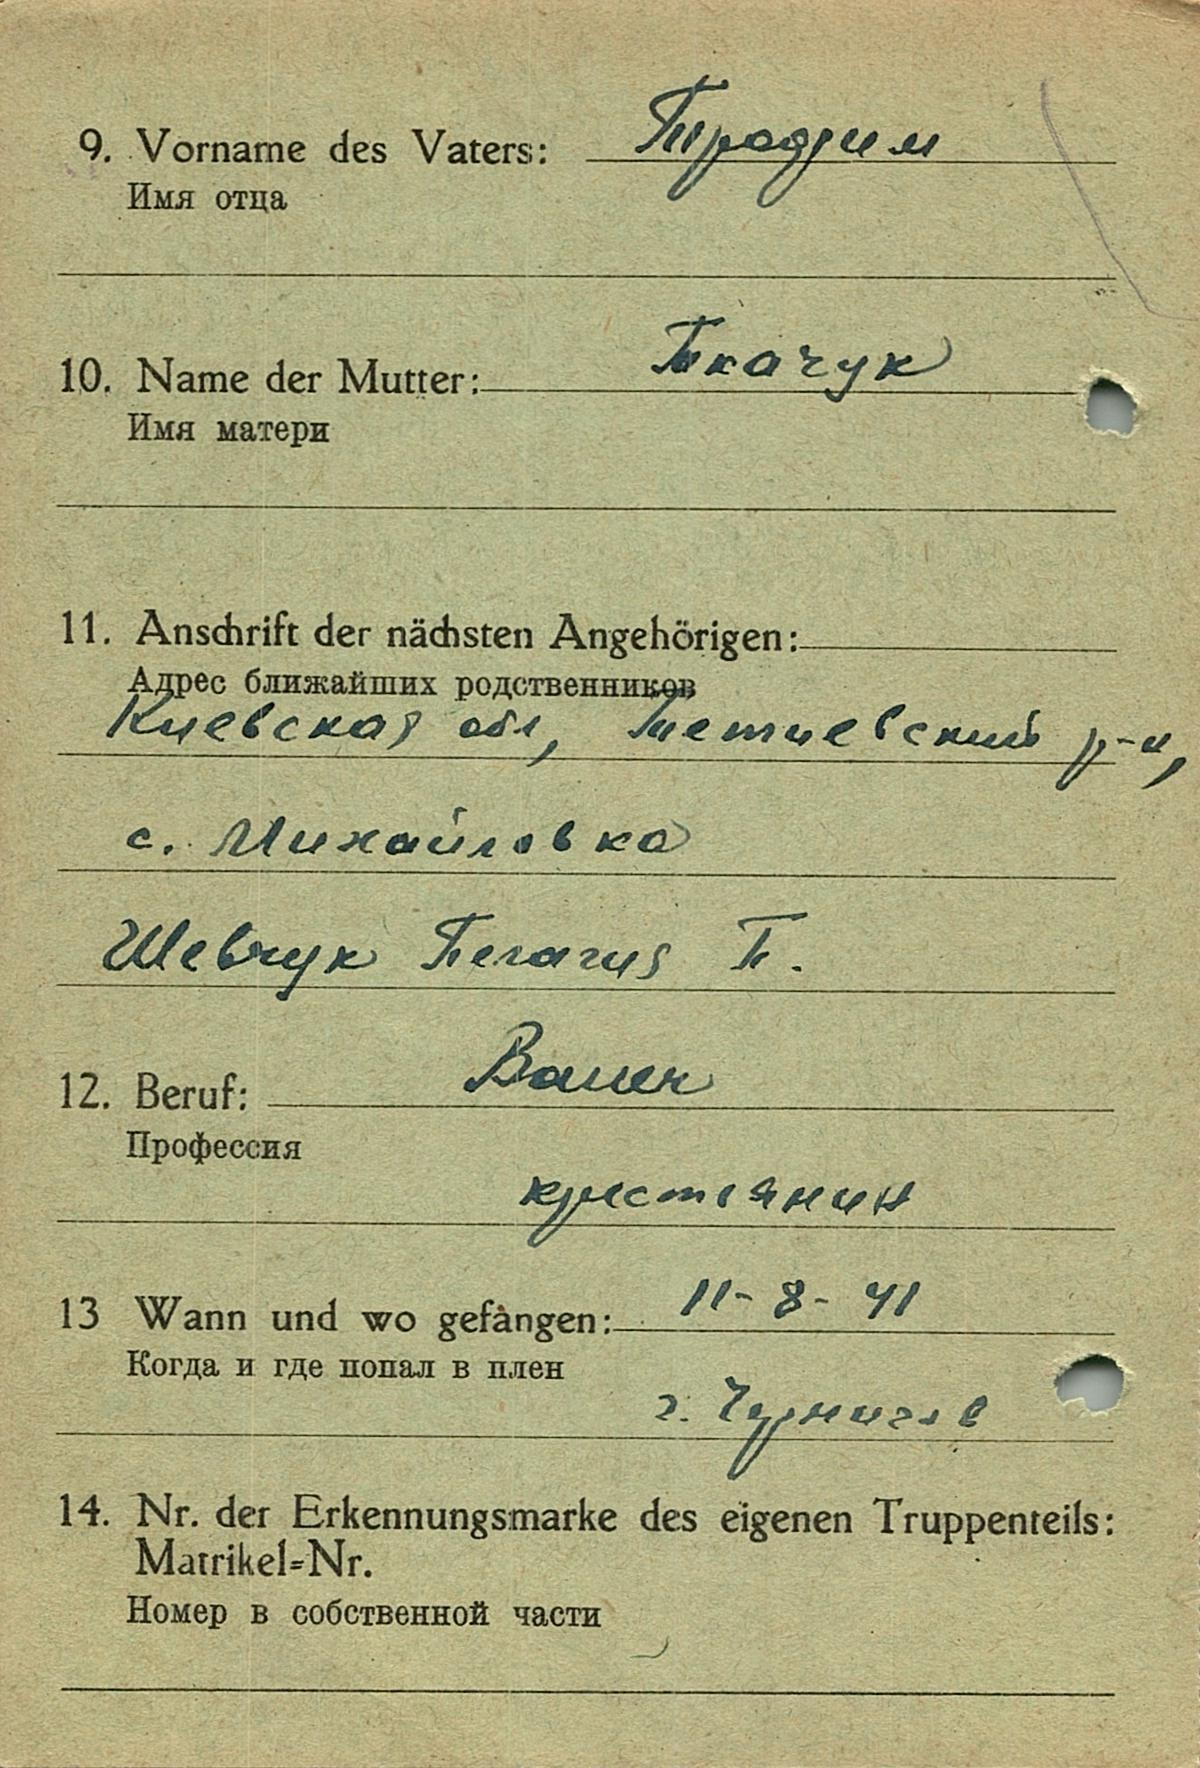 9. Vorname des Vaters: Трофим
Имя отца
10. Name der Mutter: Ткачук
Имя матери
11. Anschrift der nächsten Angehörigen:
Адрес ближайших родственников
Киевская обл, Тетиевский р-н,
с. Михайловка
Шевчук Пелагия П.
12. Beruf: Bauer
Профессия
крестянин
13 Wann und wo gefangen: 11-8-41
Когда и где попал в плен
г. Чернигов
14. Nr. der Erkennungsmarke des eigenen Truppenteils:
Matrikel=Nr.
Номер в собственной части